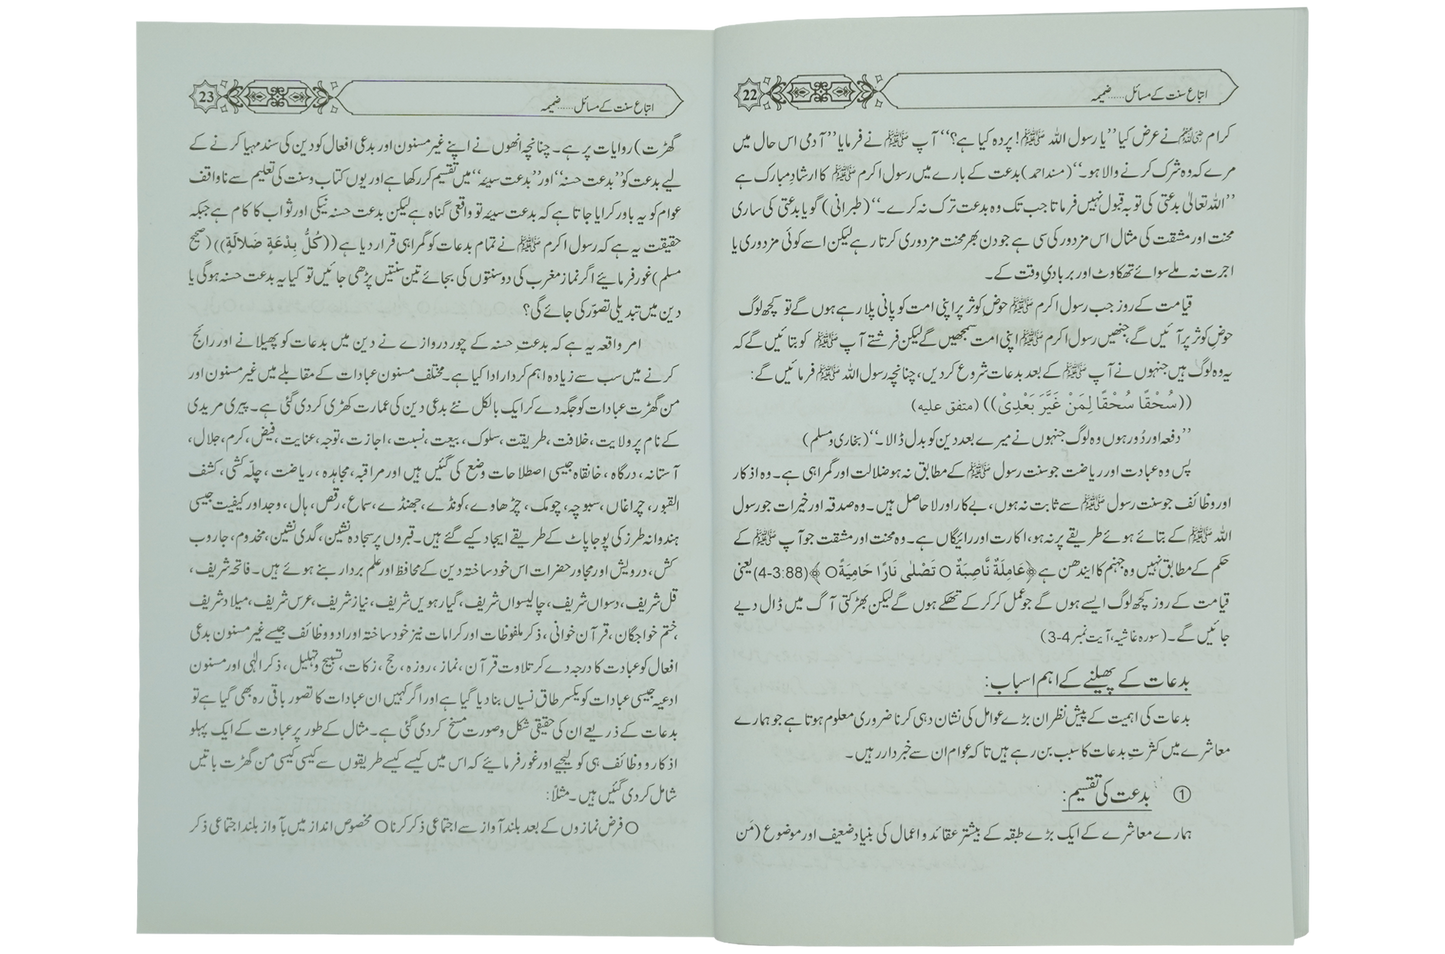 اتباع سنت کے مسائل......ضمیمہ
22
کرام ﷺ نے عرض کیا ’’یا رسول اللہ ﷺ! پردہ کیا ہے؟‘‘ آپ ﷺ نے فرمایا ’’آدمی اس حال میں
مرے کہ وہ شرک کرنے والا ہو۔‘‘ (مسند احمد) بدعت کے بارے میں رسول اکرم ﷺ کا ارشادِ مبارک ہے
’’اللہ تعالیٰ بدعتی کی توبہ قبول نہیں فرماتا جب تک وہ بدعت ترک نہ کرے۔‘‘ (طبرانی) گویا بدعتی کی ساری
محنت اور مشقت کی مثال اس مزدور کی سی ہے جو دن بھر محنت مزدوری کرتا رہے لیکن اسے کوئی مزدوری یا
اجرت نہ ملے سوائے تھکاوٹ اور بربادیِ وقت کے۔
قیامت کے روز جب رسول اکرم ﷺ حوضِ کوثر پر اپنی امت کو پانی پلا رہے ہوں گے تو کچھ لوگ
حوضِ کوثر پر آئیں گے جنھیں رسول اکرم ﷺ اپنی امت سمجھیں گے لیکن فرشتے آپ ﷺ کو بتائیں گے کہ
یہ وہ لوگ ہیں جنہوں نے آپ ﷺ کے بعد بدعات شروع کر دیں، چنانچہ رسول اللہ ﷺ فرمائیں گے:
((سُحْقًا سُحْقًا لِمَنْ غَیَّرَ بَعْدِیْ)) (متفق علیہ)
’’دفعہ اور دُور ہوں وہ لوگ جنہوں نے میرے بعد دین کو بدل ڈالا۔‘‘ (بخاری و مسلم)
پس وہ عبادت اور ریاضت جو سنت رسول ﷺ کے مطابق نہ ہو ضلالت اور گمراہی ہے۔ وہ اذکار
اور وظائف جو سنت رسول ﷺ سے ثابت نہ ہوں، بے کار اور لا حاصل ہیں۔ وہ صدقہ اور خیرات جو رسول
اللہ ﷺ کے بتائے ہوئے طریقے پر نہ ہو، اکارت اور رائیگاں ہے۔ وہ محنت اور مشقت جو آپ ﷺ کے
حکم کے مطابق نہیں وہ جہنم کا ایندھن ہے ﴿عَامِلَةٌ نَّاصِبَةٌ ○ تَصْلٰی نَارًا حَامِیَةً ○﴾ (4-3:88) یعنی
قیامت کے روز کچھ لوگ ایسے ہوں گے جو عمل کر کر کے تھکے ہوں گے لیکن بھڑکتی آگ میں ڈال دیے
جائیں گے۔ (سورہ غاشیہ، آیت نمبر 4-3)
بدعات کے پھیلنے کے اہم اسباب:
بدعات کی اہمیت کے پیش نظر ان بڑے عوامل کی نشان دہی کرنا ضروری معلوم ہوتا ہے جو ہمارے
معاشرے میں کثرتِ بدعات کا سبب بن رہے ہیں تاکہ عوام ان سے خبردار رہیں۔
① بدعت کی تقسیم:
ہمارے معاشرے کے ایک بڑے طبقہ کے بیشتر عقائد و اعمال کی بنیاد ضعیف اور موضوع (مَن
اتباع سنت کے مسائل......ضمیمہ
23
گھڑت) روایات پر ہے۔ چنانچہ انھوں نے اپنے غیر مسنون اور بدعی افعال کو دین کی سند مہیا کرنے کے
لیے بدعت کو ’’بدعت حسنہ‘‘ اور ’’بدعت سیئہ‘‘ میں تقسیم کر رکھا ہے اور یوں کتاب و سنت کی تعلیم سے ناواقف
عوام کو یہ باور کرایا جاتا ہے کہ بدعت سیئہ تو واقعی گناہ ہے لیکن بدعت حسنہ نیکی اور ثواب کا کام ہے جبکہ
حقیقت یہ ہے کہ رسول اکرم ﷺ نے تمام بدعات کو گمراہی قرار دیا ہے ((کُلُّ بِدْعَةٍ ضَلَالَةٍ)) (صحیح
مسلم) غور فرمائیے اگر نماز مغرب کی دو سنتوں کی بجائے تین سنتیں پڑھی جائیں تو کیا یہ بدعت حسنہ ہوگی یا
دین میں تبدیلی تصوّر کی جائے گی؟
امر واقعہ یہ ہے کہ بدعتِ حسنہ کے چور دروازے نے دین میں بدعات کو پھیلانے اور رائج
کرنے میں سب سے زیادہ اہم کردار ادا کیا ہے۔ مختلف مسنون عبادات کے مقابلے میں غیر مسنون اور
من گھڑت عبادات کو جگہ دے کر ایک بالکل نئے بدعی دین کی عمارت کھڑی کر دی گئی ہے۔ پیری مریدی
کے نام پر ولایت، خلافت، طریقت، سلوک، بیعت، نسبت، اجازت، توجہ، عنایت، فیض، کرم، جلال،
آستانہ، درگاہ، خانقاہ جیسی اصطلاحات وضع کی گئیں ہیں اور مراقبہ، مجاہدہ، ریاضت، چلّہ کشی، کشف
القبور، چراغاں، سبوچہ، چومک، چڑھاوے، کونڈے، جھنڈے، سماع، رقص، ہال، وجد اور کیفیت جیسی
ہندوانہ طرز کی پوجا پاٹ کے طریقے ایجاد کیے گئے ہیں۔ قبروں پر سجادہ نشین، گدی نشین، مخدوم، جاروب
کش، درویش اور مجاور حضرات اس خود ساختہ دین کے محافظ اور علم بردار بنے ہوئے ہیں۔ فاتحہ شریف،
قل شریف، دسواں شریف، چالیسواں شریف، گیارہویں شریف، نیاز شریف، عرس شریف، میلاد شریف
، ختم خواجگان، قرآن خوانی، ذکر ملفوظات اور کرامات نیز خود ساختہ اوراد و وظائف جیسے غیر مسنون بدعی
افعال کو عبادت کا درجہ دے کر تلاوت قرآن، نماز، روزہ، حج، زکات، تسبیح و تہلیل، ذکر الٰہی اور مسنون
ادعیہ جیسی عبادات کو یکسر طاقِ نسیاں بنا دیا گیا ہے اور اگر کہیں ان عبادات کا تصور باقی رہ بھی گیا ہے تو
بدعات کے ذریعے ان کی حقیقی شکل و صورت مسخ کر دی گئی ہے۔ مثال کے طور پر عبادت کے ایک پہلو
اذکار و وظائف ہی کو لیجیے اور غور فرمائیے کہ اس میں کیسے کیسے طریقوں سے کیسی کیسی من گھڑت باتیں
شامل کر دی گئیں ہیں۔ مثلاً:
○ فرض نمازوں کے بعد بلند آواز سے اجتماعی ذکر کرنا ○ مخصوص انداز میں با آواز بلند اجتماعی ذکر